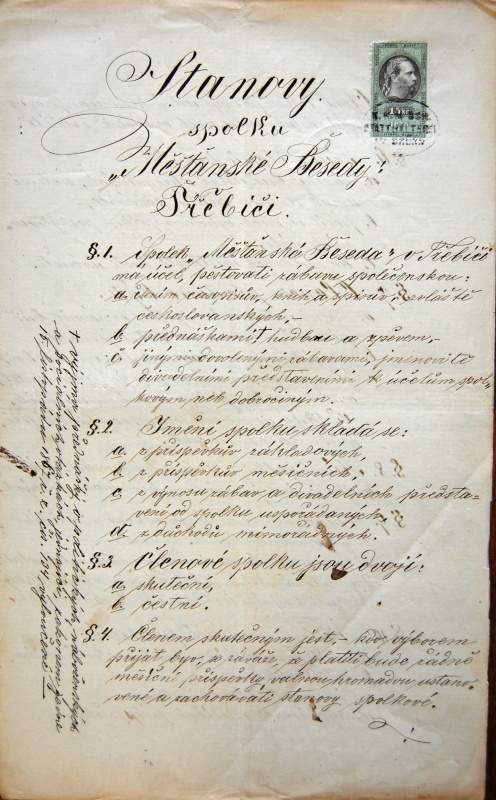 Stanovy
spolku
„Měšťanské Besedy“
Třebíči.
§.1. Spolek „Měšťanská Beseda“ v Třebíči
má účel, pěstovati zábavu společenskou:
a. čtením časopisův, knih a spisův, zvláště
českoslovanských,-
b přednáškami † hudbou a zpěvem,-
c jinými dovolenými zábavami, jmenovitě
divadelními představeními k účelům spol-
kovým neb dobročinným.
§.2. Jmění spolku skládá se:
a z příspěvkův základových,
b z příspěvkův měsíčních,
c z výnosu zábav a divadelních předsta-
vení, od spolku uspořádaných.
d z důchodů mimořádných.
§.3 Členové spolku jsou dvojí:
a skuteční,
b čestní.
§.4. Členem skutečným jest,- kdo výborem
přijat byv, se zaváže, že platiti bude řádně
měsíční příspěvky valnou hromadou ustano-
vené a zachovávati stanovy spolkové.
† vyjma přednášky o politických, náboženských
a otázkách, jednajíc, zákonem ze dne
15 listopadu 1867 č. ř. z. 134 vyloučené
1 5 KR